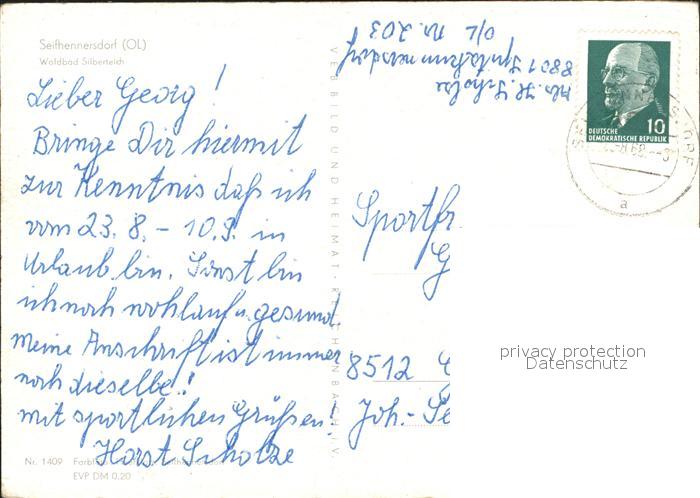 Seifhennersdorf (OL)
Waldbad Silberteich
Lieber Georg!
Bringe Dir hiermit
zur Kenntnis daß ich
vom 23. 8. - 10. 9. in
Urlaub bin. Sonst bin
ich noch wohlauf u. gesund
meine Anschrift ist immer
noch dieselbe!
mit sportlichen Grüßen!
Horst Scholze
Nr. 1409 Farbfoto
EVP DM 0.20
VEB BILD UND HEIMAT · REICHENBACH i. V.
Abs. H. Scholze
8801 Spitzkunnersdorf
O/L Nr. 203
10
DEUTSCHE
DEMOKRATISCHE REPUBLIK
a
Sportfr
G
8512
Joh.- Se
privacy protection
Datenschutz